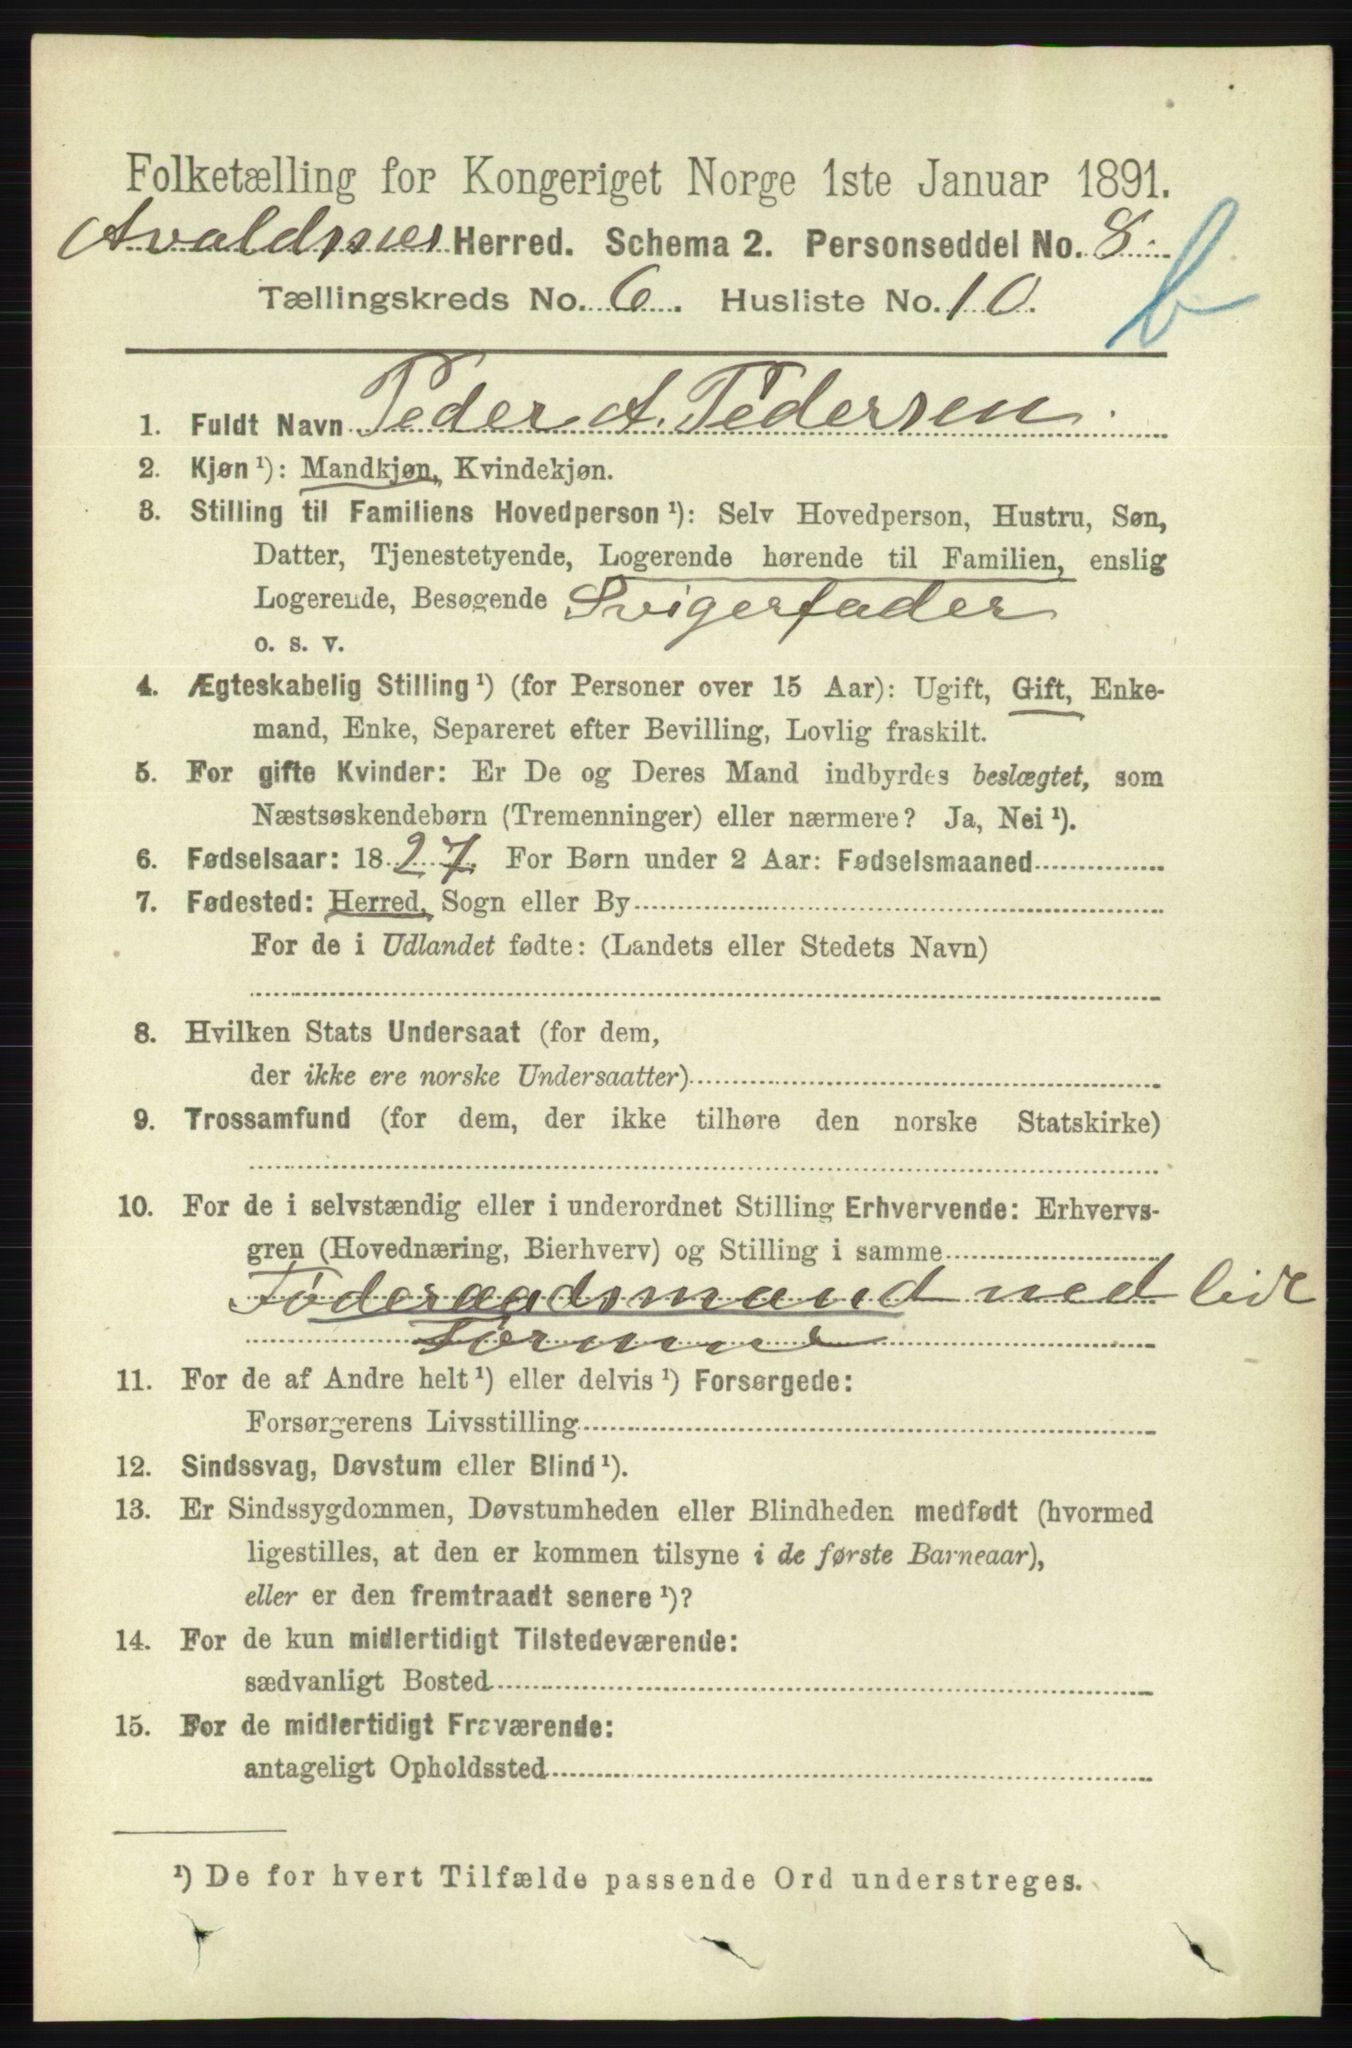 Folketælling for Kongeriget Norge 1ste Januar 1891.
Avaldsnes Herred. Schema 2. Personseddel No. 8.
Tællingskreds No. 6. Husliste No. 10.
b
1. Fuldt Navn Peder A. Pedersen.
2. Kjøn ¹): Mandkjøn, Kvindekjøn.
3. Stilling til Familiens Hovedperson ¹): Selv Hovedperson, Hustru, Søn,
Datter, Tjenestetyende, Logerende hørende til Familien, enslig
Logerende, Besøgende Svigerfader
o. s. v.
4. Ægteskabelig Stilling ¹) (for Personer over 15 Aar): Ugift, Gift, Enke-
mand, Enke, Separeret efter Bevilling, Lovlig fraskilt.
5. For gifte Kvinder: Er De og Deres Mand indbyrdes beslægtet, som
Næstsøskendebørn (Tremenninger) eller nærmere? Ja, Nei ¹).
6. Fødselsaar: 1827. For Børn under 2 Aar: Fødselsmaaned
7. Fødested: Herred, Sogn eller By
For de i Udlandet fødte: (Landets eller Stedets Navn)
8. Hvilken Stats Undersaat (for dem,
der ikke ere norske Undersaatter)
9. Trossamfund (for dem, der ikke tilhøre den norske Statskirke)
10. For de i selvstændig eller i underordnet Stilling Erhvervende: Erhvervs-
gren (Hovednæring, Bierhverv) og Stilling i samme
Føderaadsmand med lidt
11. For de af Andre helt ¹) eller delvis ¹) Forsørgede:
Forsørgerens Livsstilling
12. Sindssvag, Døvstum eller Blind ¹).
13. Er Sindssygdommen, Døvstumheden eller Blindheden medfødt (hvormed
ligestilles, at den er kommen tilsyne i de første Barneaar),
eller er den fremtraadt senere ¹)?
14. For de kun midlertidigt Tilstedeværende:
sædvanligt Bosted
15. For de midlertidigt Fraværende:
antageligt Opholdssted
¹) De for hvert Tilfælde passende Ord understreges.